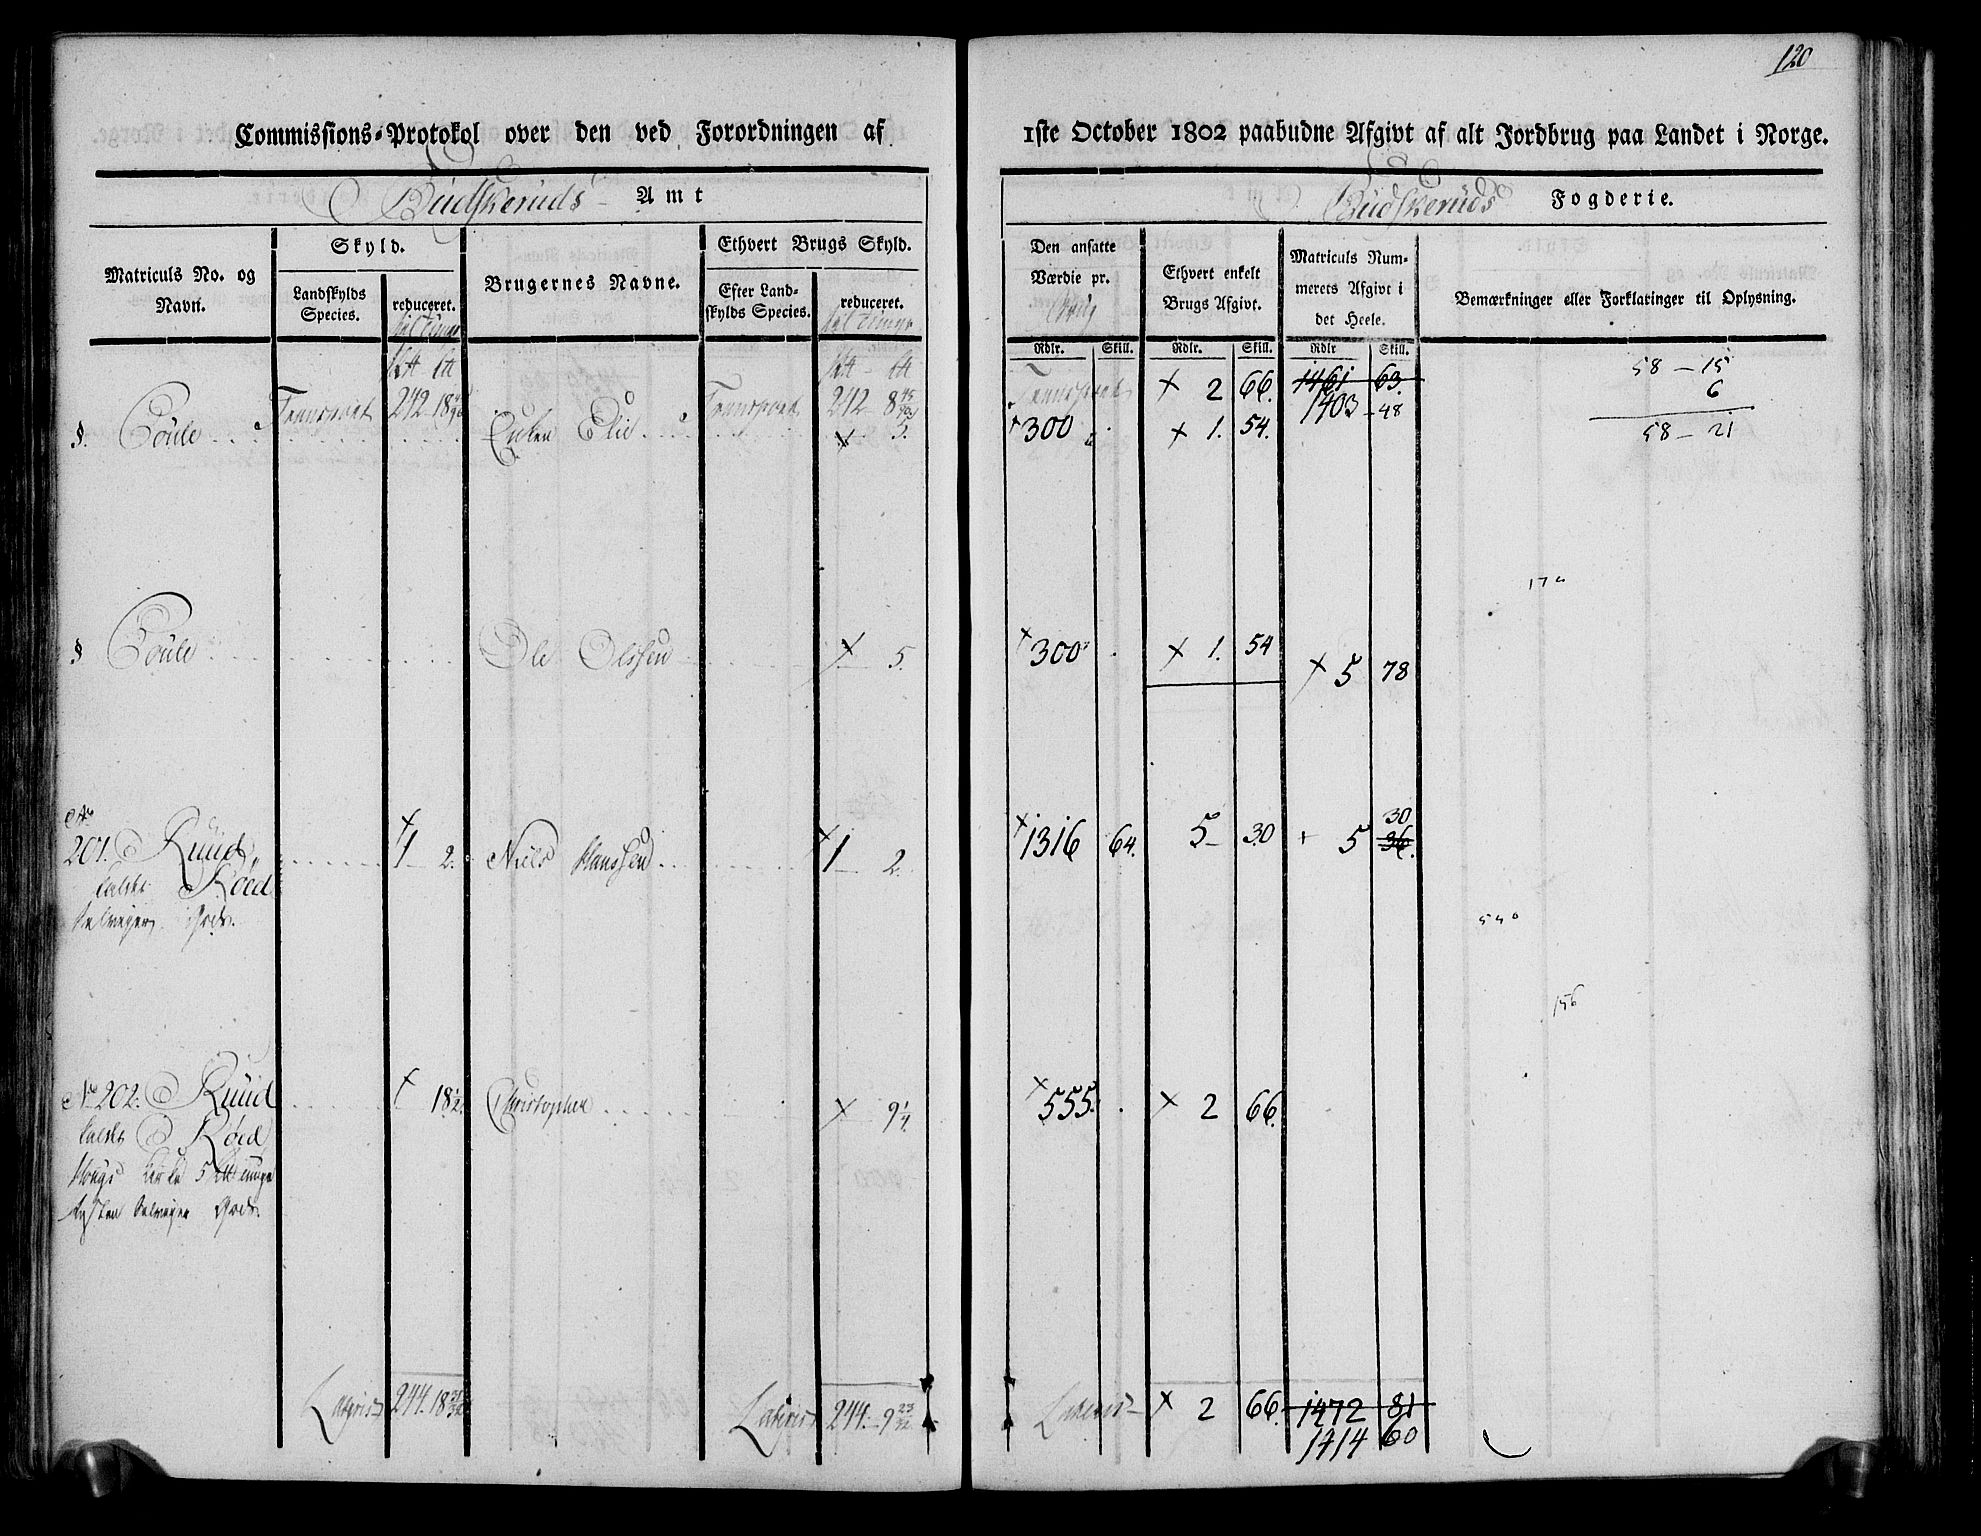 120
Commissions-Protokol over den ved Forordningen af 1ste October 1802 paabudne Afgivt af alt Jordbrug paa Landet i Norge.
Budskeruds Amt
Budskeruds Fogderie.
Matriculs No. og Navn.
Skyld.
Landskylds Species.
reduceret.
Brugernes Navne.
Ethvert Brugs Skyld.
Efter Landskylds Species.
reduceret.
Den ansatte Værdie pr.
Ethvert enkelt Brugs Afgivt.
Matriculs Nummerets Afgivt i det Heele.
Bemærkninger eller Forklaringer til Oplysning.
Rdlr. Skill. Rdlr. Skill. Rdlr Skill.
Transport 242 18 Transport 242 8 Transport × 2 66. 1461 63. 58 - 15
1403 - 48 6
§. Elie × 5. × 300 × 1. 54. 58 - 21
170
§ Ole Olssen × 5. × 300 × 1. 54 × 5 78
No 201. Ruud, × 1 2. Niels Hanssen × 1 2. × 1316 64. 5 30 + 5 36. 30
kaldet Røed
Selveyer Gods.
540
156
No 202. Ruud × 18 1/2. Christopher × 9 1/4 × 555. × 2 66.
kaldet Røed
Selveyer Gods.
Lateris 244. 18 Lateris 244. 9 23/32 Lateris × 2 66. 1472 81
1414 60